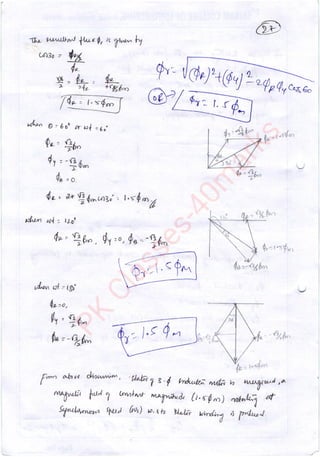 27
The resultant flux φr is given by
cos30 = φr/2 / φR
√3/2 = φr / 2φR = φr / √3φm
φr = 1.5φm
(OR)
φr = √(φR)²+(φy)²-2φRφy cos60
φr = 1.5φm
when θ = 60° or wt = 60°
φR = √3/2 φm
φy = -√3/2 φm
φB = 0.
φr = 2× √3/2 φm cos30° = 1.5φm
when wt = 120°
φR = √3/2 φm, φy = 0, φB = -√3/2 φm
φr = 1.5φm
when wt = 180°
φR = 0,
φy = √3/2 φm
φB = -√3/2 φm
φr = 1.5 φm
PK Classes-40marks
From above discussion, stator of 3-φ induction motor is energised, a
magnetic field of constant magnitude (1.5φm) rotating at
synchronous speed (Ns) w.r.to stator winding is produced.